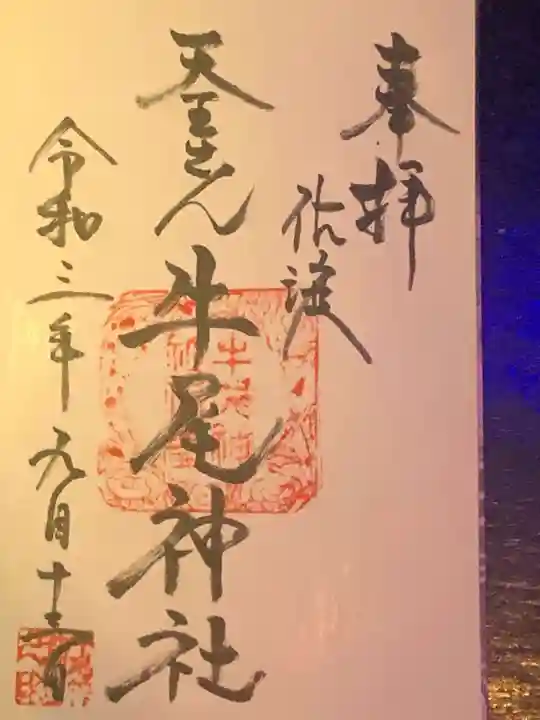 奉拝
佐渡
天王さん
牛尾神社
令和三年九月十三日